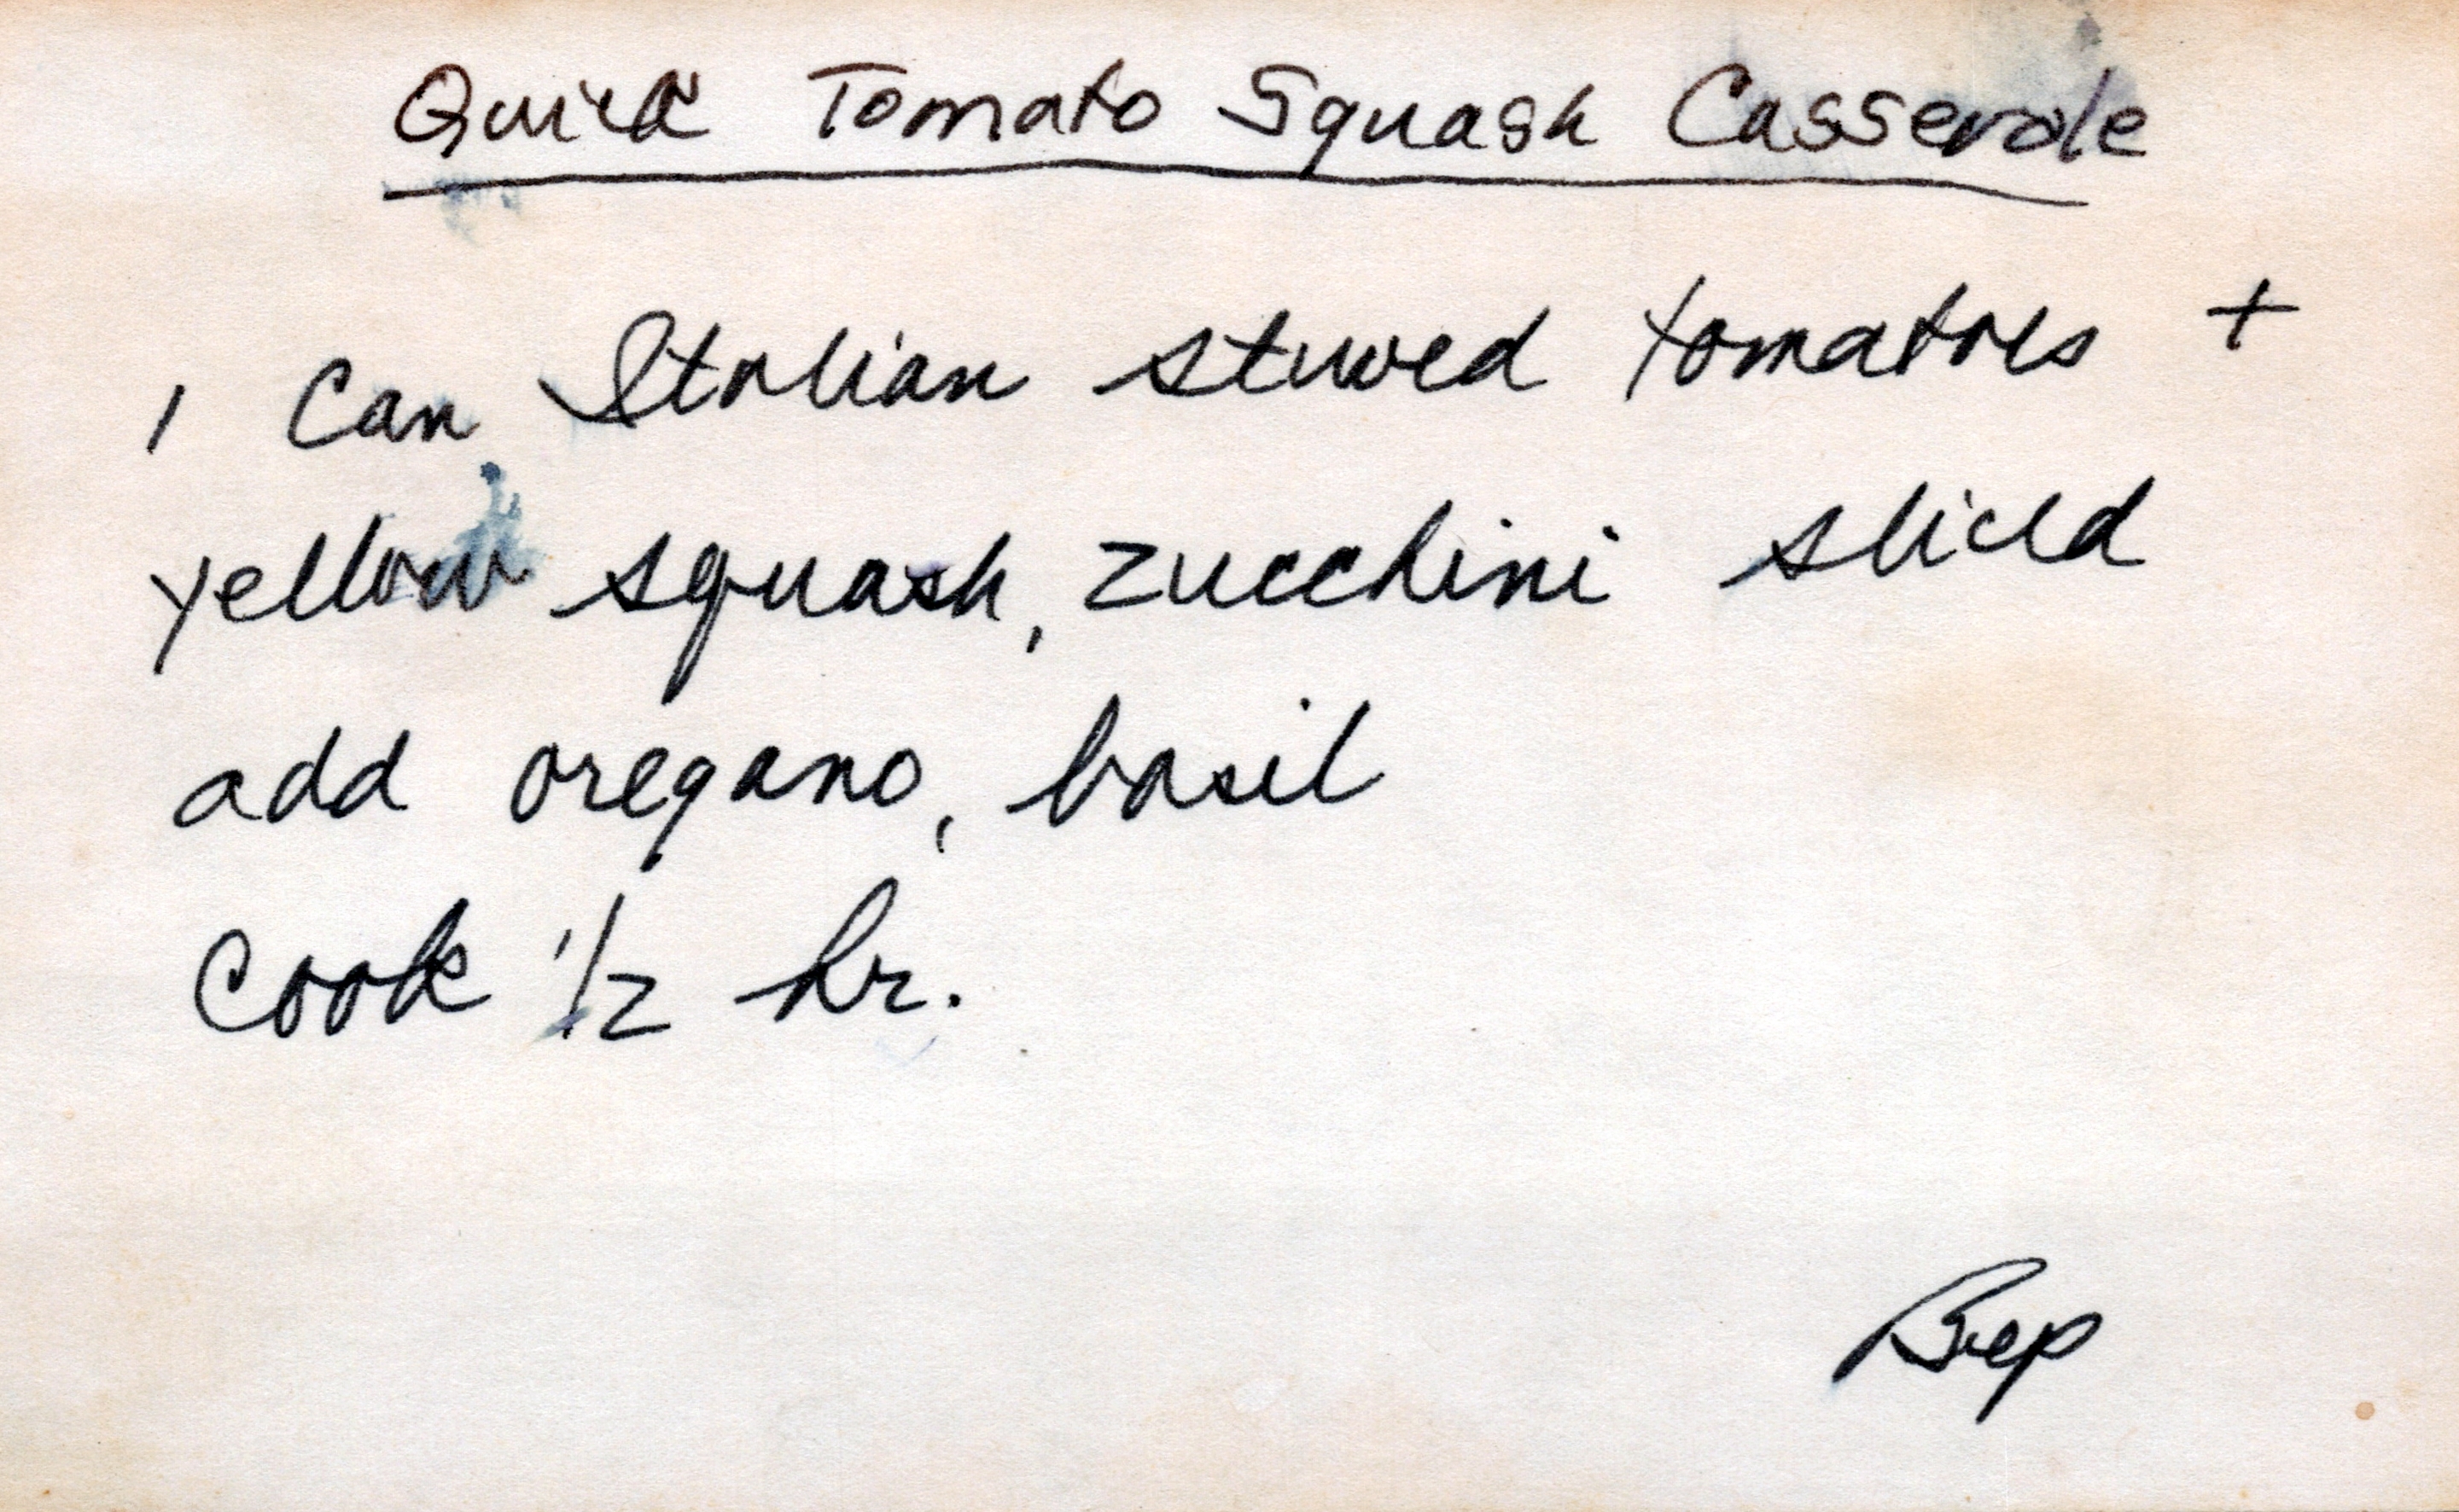 Quick Tomato Squash Casserole
1 Can Italian stewed tomatoes +
yellow squash, zucchini sliced
add oregano, basil
Cook 1/2 hr.